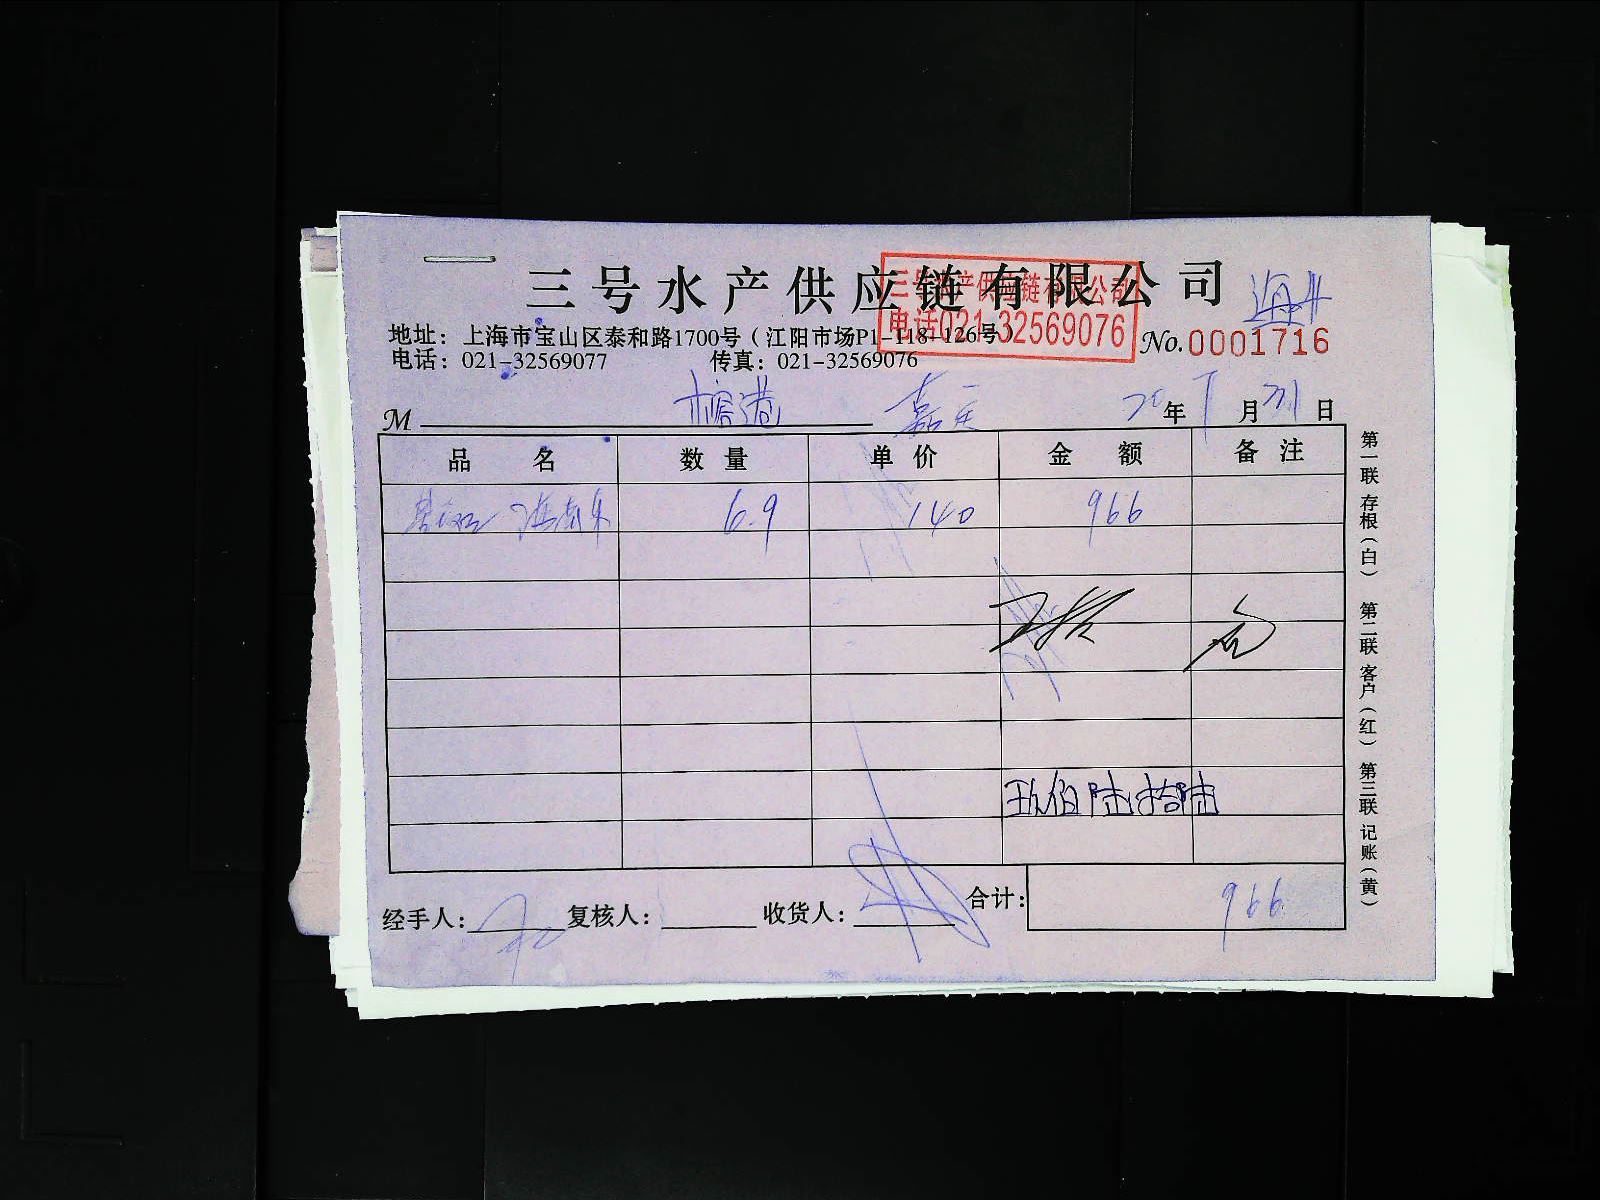 三号水产供应链有限公司
三号水产供应链有限公司
电话021-32569076
地址：上海市宝山区泰和路1700号（江阳市场P1-118-126号）
电话：021-32569077 传真：021-32569076
No.0001716
M 榕港 嘉定 20年 月31日
品名 数量 单价 金额 备注
6.9 140 966
玖佰陆拾陆
经手人： 复核人： 收货人： 合计： 966
第一联 存根（白） 第二联 客户（红） 第三联 记账（黄）